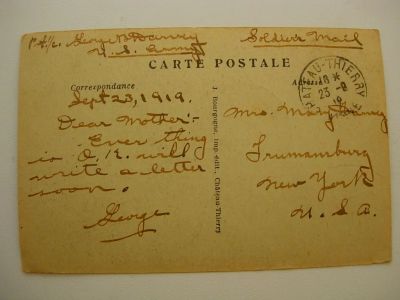 George Danry
U.S. Army
Soldier's Mail
CARTE POSTALE
Correspondance
Adresse
CHATEAU-THIERRY
18 *
23-9
19
AISNE
Sept 23, 1919.
Dear Mother:-
Ever thing
is O.K. will
write a letter
soon.
George
J. Bourgogne, imp.-édit., Château-Thierry
Mrs. Mary
Trumansburg
New York
U.S.A.